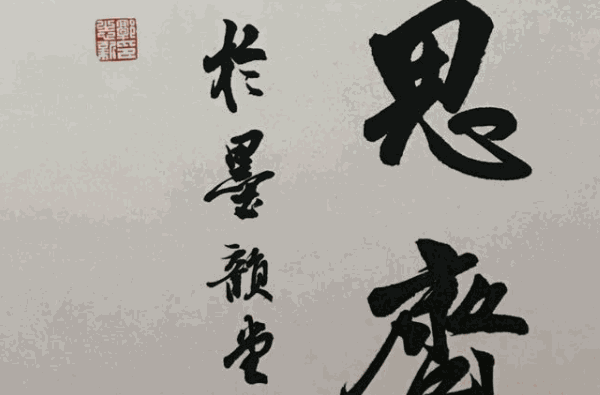 思齊
於墨韻堂